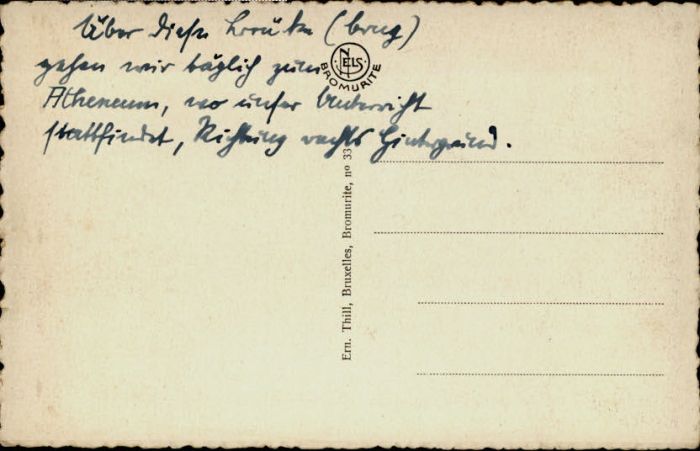 Über diese Brücke (brug)
gehen wir täglich zum
Atheneum, wo unser Unterricht
stattfindet, Richtung rechts Hintergrund.
NELS
BROMURITE
Ern. Thill, Bruxelles, Bromurite, nº 33